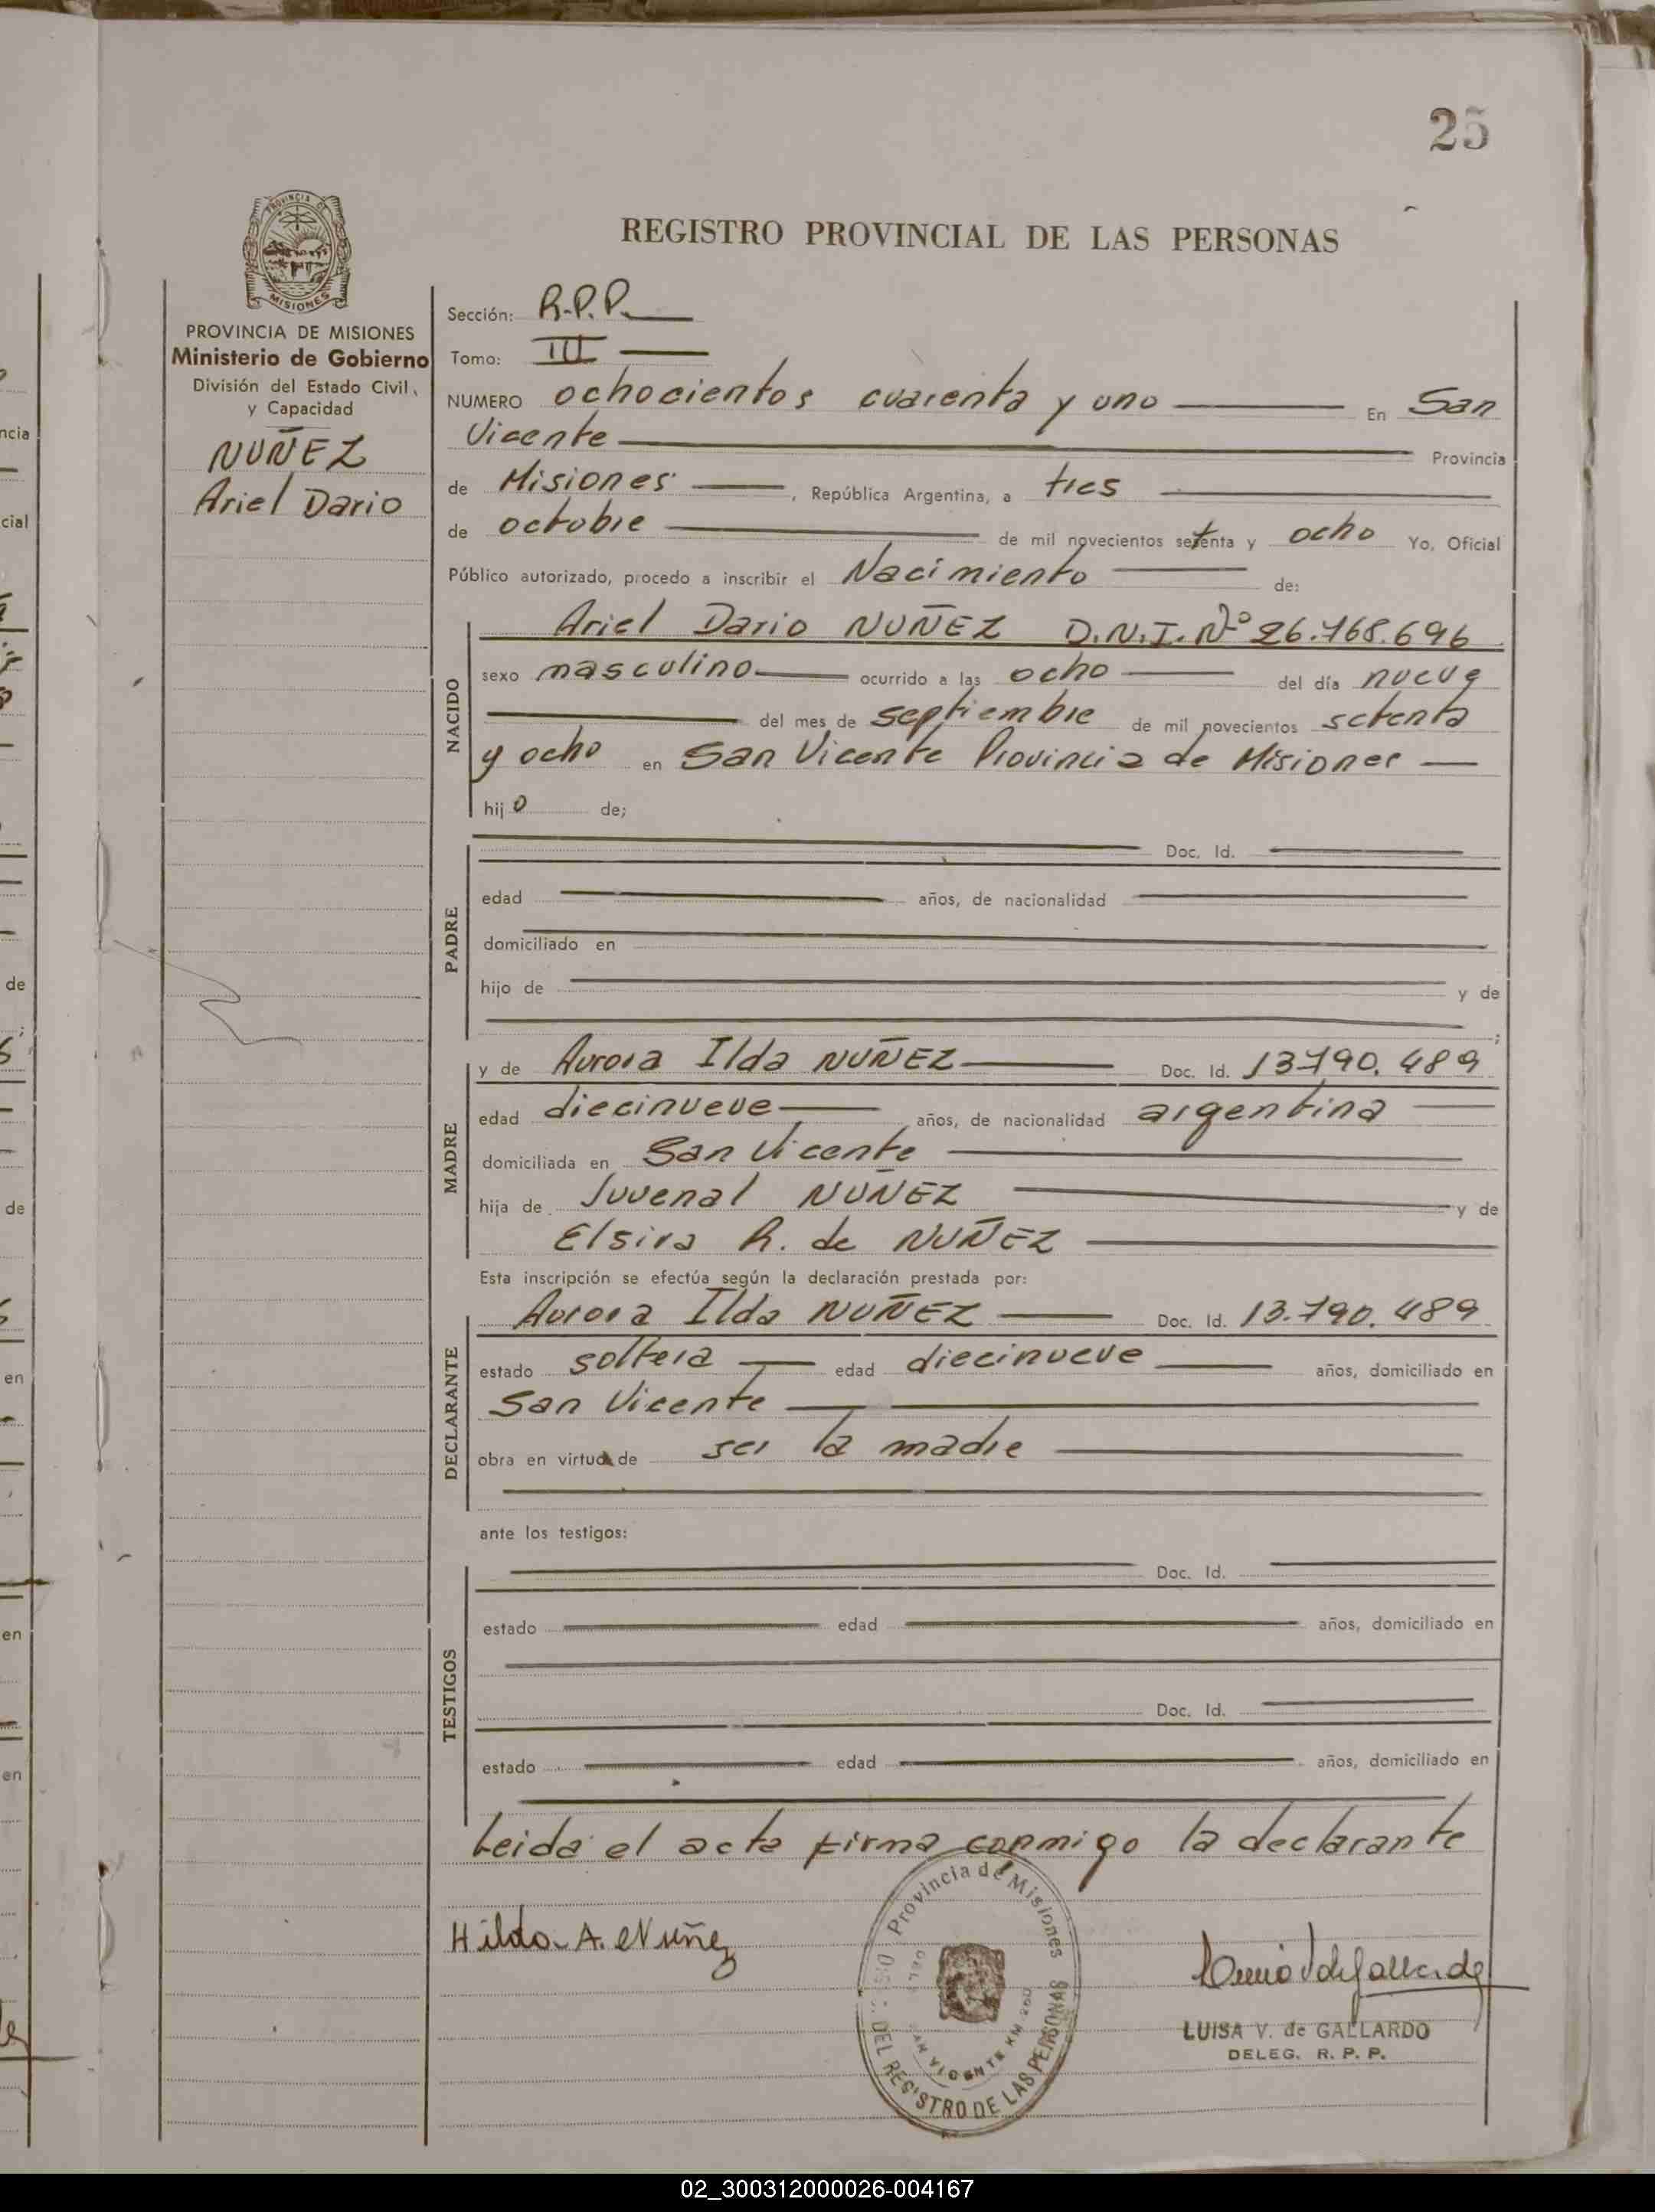 25
REGISTRO PROVINCIAL DE LAS PERSONAS
PROVINCIA DE
MISIONES
PROVINCIA DE MISIONES
Ministerio de Gobierno
División del Estado Civil,
y Capacidad
NUÑEZ
Ariel Dario
Sección: R.P.P.
Tomo: III
NUMERO ochocientos cuarenta y uno En San
Vicente Provincia
de Misiones, República Argentina, a tres
de octubre de mil novecientos setenta y ocho Yo, Oficial
Público autorizado, procedo a inscribir el Nacimiento de:
NACIDO
Ariel Dario NUÑEZ D.N.I. Nº 26.768.696
sexo masculino ocurrido a las ocho del día nueve
del mes de septiembre de mil novecientos setenta
y ocho en San Vicente Provincia de Misiones
hijo de;
PADRE
Doc. Id.
edad años, de nacionalidad
domiciliado en
hijo de y de
;
MADRE
y de Aurora Ilda NUÑEZ Doc. Id. 13.790.489
edad diecinueve años, de nacionalidad argentina
domiciliada en San Vicente
hija de Juvenal NUÑEZ y de
Elsira R. de NUÑEZ
Esta inscripción se efectúa según la declaración prestada por:
DECLARANTE
Aurora Ilda NUÑEZ Doc. Id. 13.790.489
estado soltera edad diecinueve años, domiciliado en
San Vicente
obra en virtud de ser la madre
ante los testigos:
TESTIGOS
Doc. Id.
estado edad años, domiciliado en
Doc. Id.
estado edad años, domiciliado en
Leida el acta firma conmigo la declarante
Hilda A. Nuñez
Provincia de Misiones
DEL REGISTRO DE LAS PERSONAS
SAN VICENTE KM.
LUISA V. de GALLARDO
DELEG. R. P. P.
ncia
cial
de
de
en
en
en
02_300312000026-004167